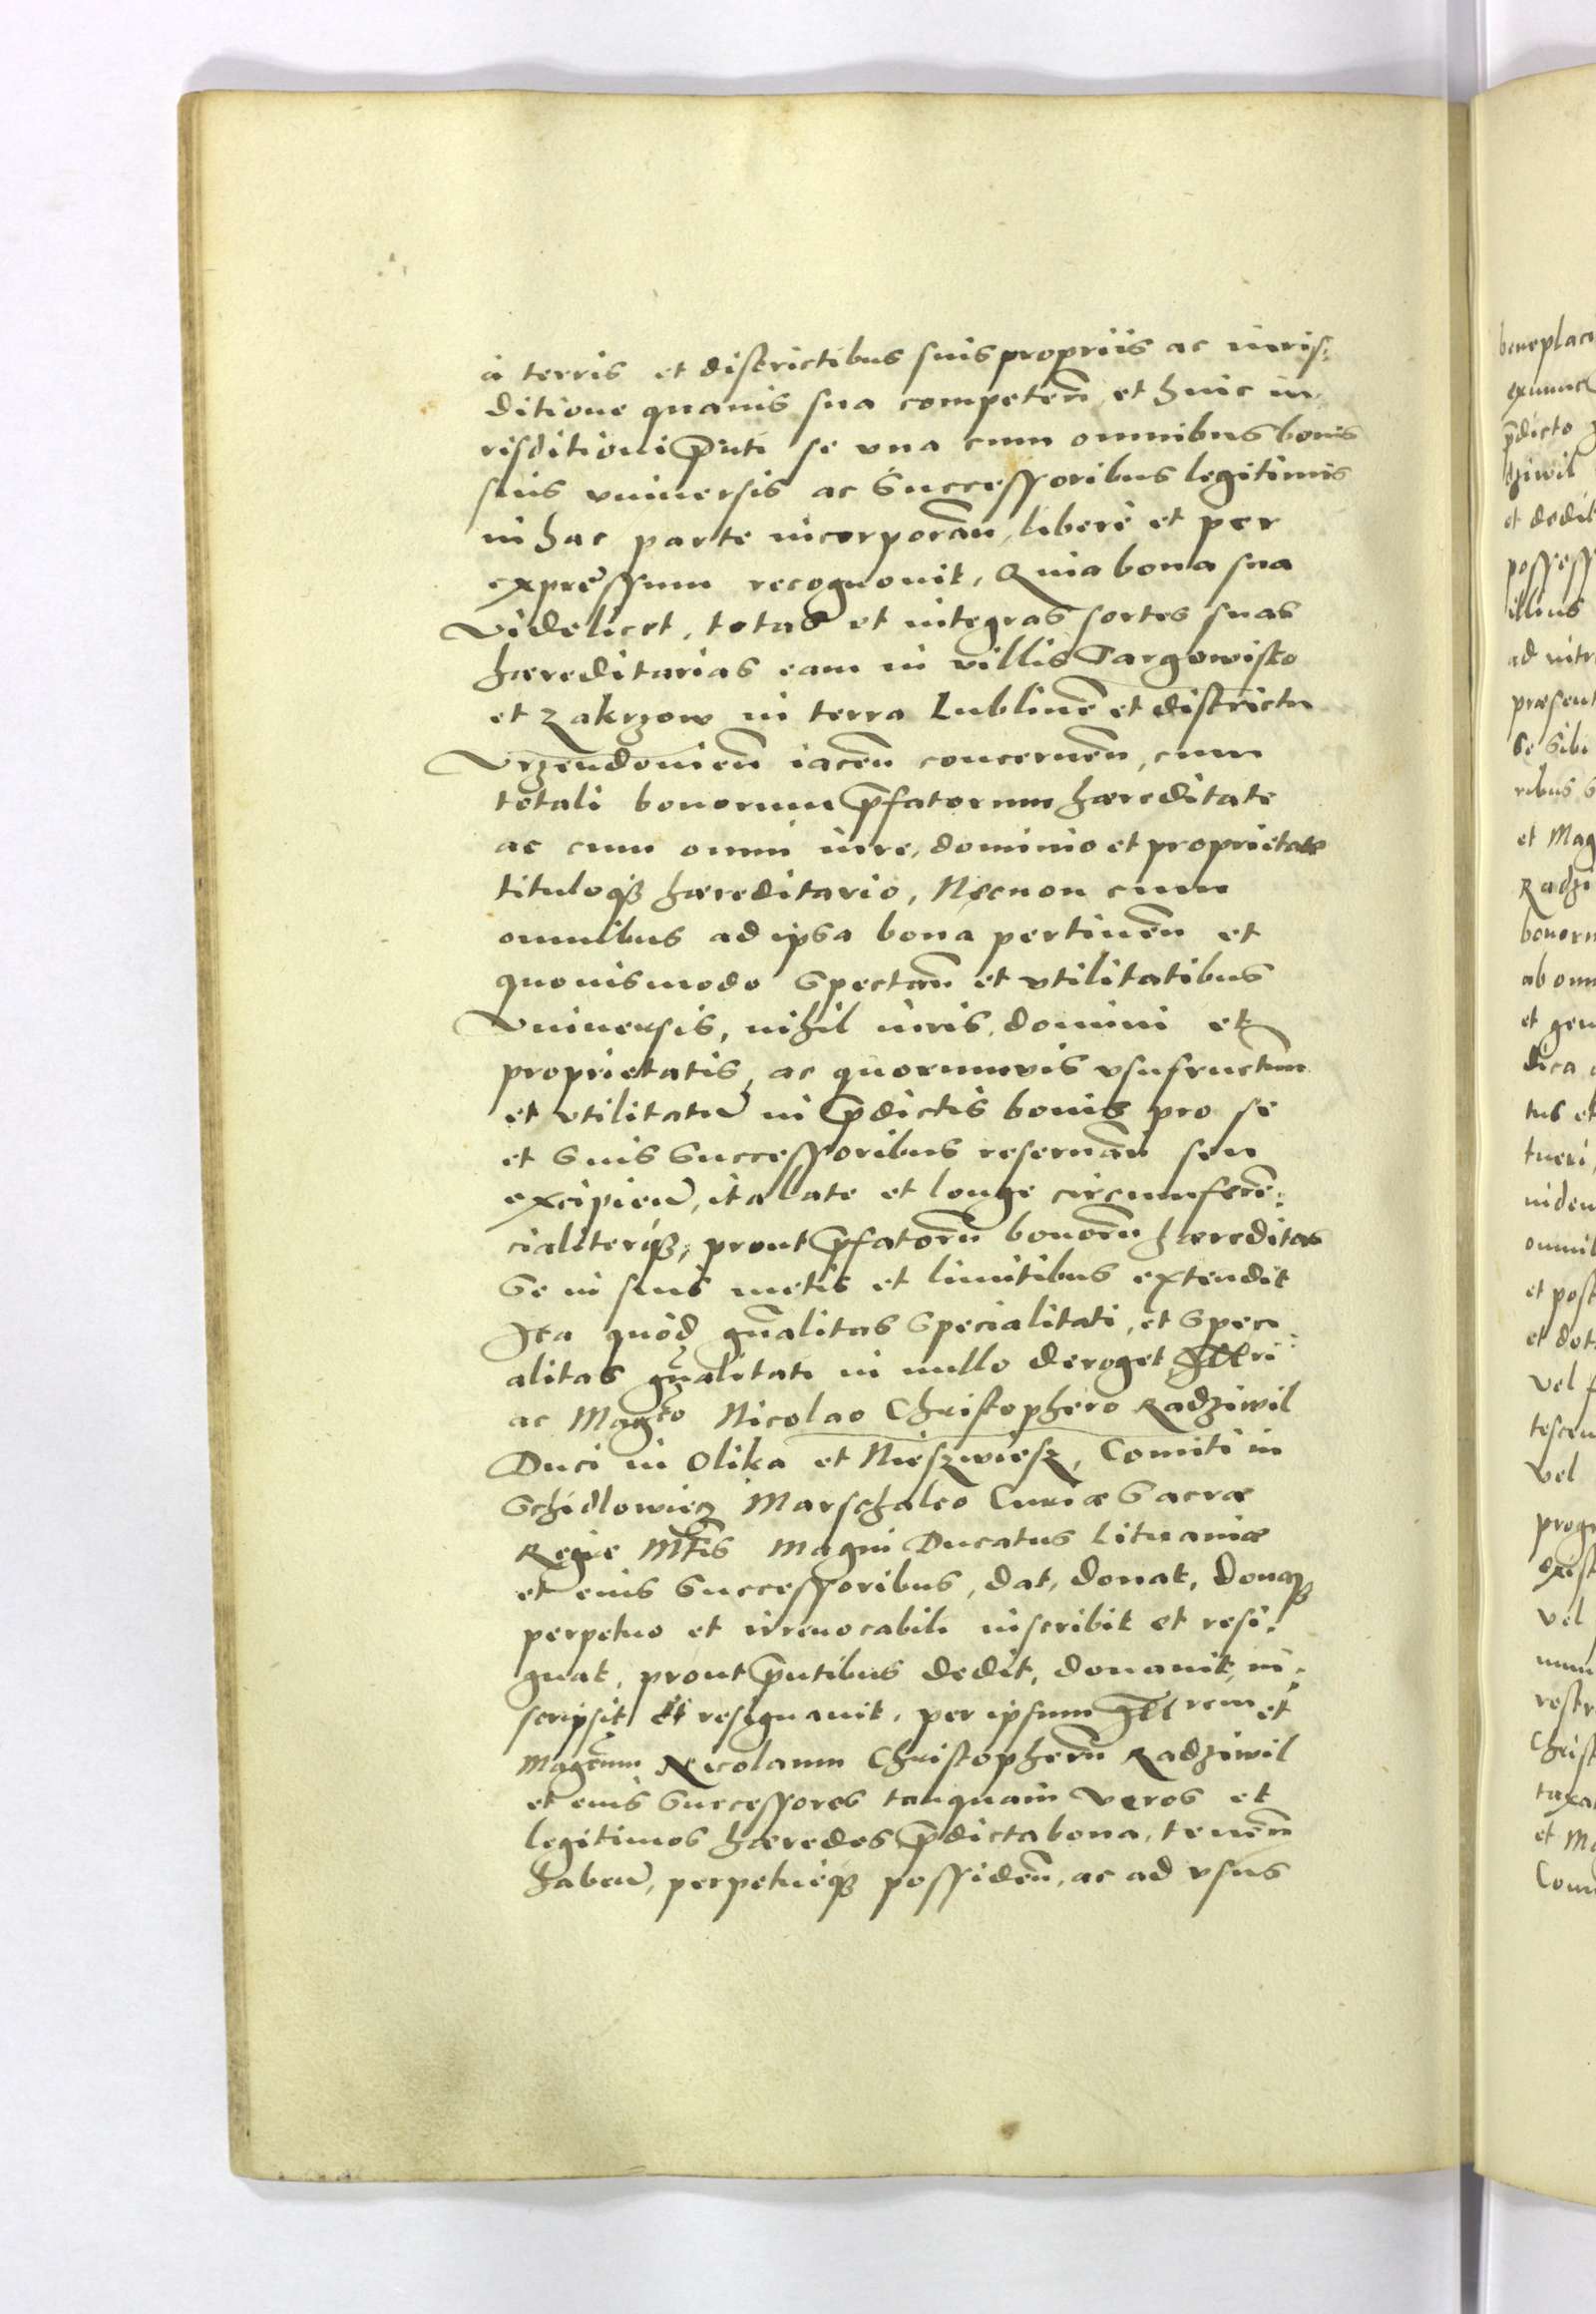 à terris et districtibus suis propriis ac iuris:
ditione quauis sua competen̄ et huic iu
risditioni p̄nti se vna cum omnibus bonis
suis vniuersis ac Successoribus legitimis
in hac parte incorporan̄, libere et per
expressum recognouit, Quia bona sua
Videlicet, totas et integras sortes suas
hæreditarias eam in villis Targowisko
et Zakrzow in terra Lublinen̄ et districtu
Vrzendouien̄ iacen̄ concernen̄, cum
totali bonorum p̄fatorum hæreditate
ac cum omni iure, dominio et proprietate
tituloqꝫ hæreditario, Necnon cum
omnibus ad ipsa bona pertinen̄ et
quouismodo Spectan̄ et vtilitatibus
Vniuersis, nihil iuris, domini et
proprietatis, ac quorumuis vsufructum
et vtilitatū in p̄dictis bonis pro se
et Suis Successoribus reseruan̄ seu
excipien̄, ita late et longe circumferē:
cialiterqꝫ, prout p̄fatorū bonorū hæreditas
Se in suis metis et limitibus extendit
Ita quòd gn̄alitas Specialitati, et Speci
alitas gn̄alitati in nullo deroget, Illri
ac Magco Nicolao Christophero Radziwil
Duci in Olika et Nieszwiesz, Comiti in
Schidlowiecz Marschalco Curiæ Sacræ
Regie Mtis Magni Ducatus Lituaniæ
et eius Successoribus, dat, donat, donaqꝫ
perpetuo et irreuocabili inscribit et resi:
gnat, prout p̄ntibus dedit, donauit, in:
scripsit et resignauit, per ipsum Illrem et
Magcum Nicolaum Christopherū Radziwil
et eius Successores tanquam veros et
legitimos hæredes p̄dicta bona, tenen̄
haben̄, perpetuèqꝫ possiden̄, ac ad vsus